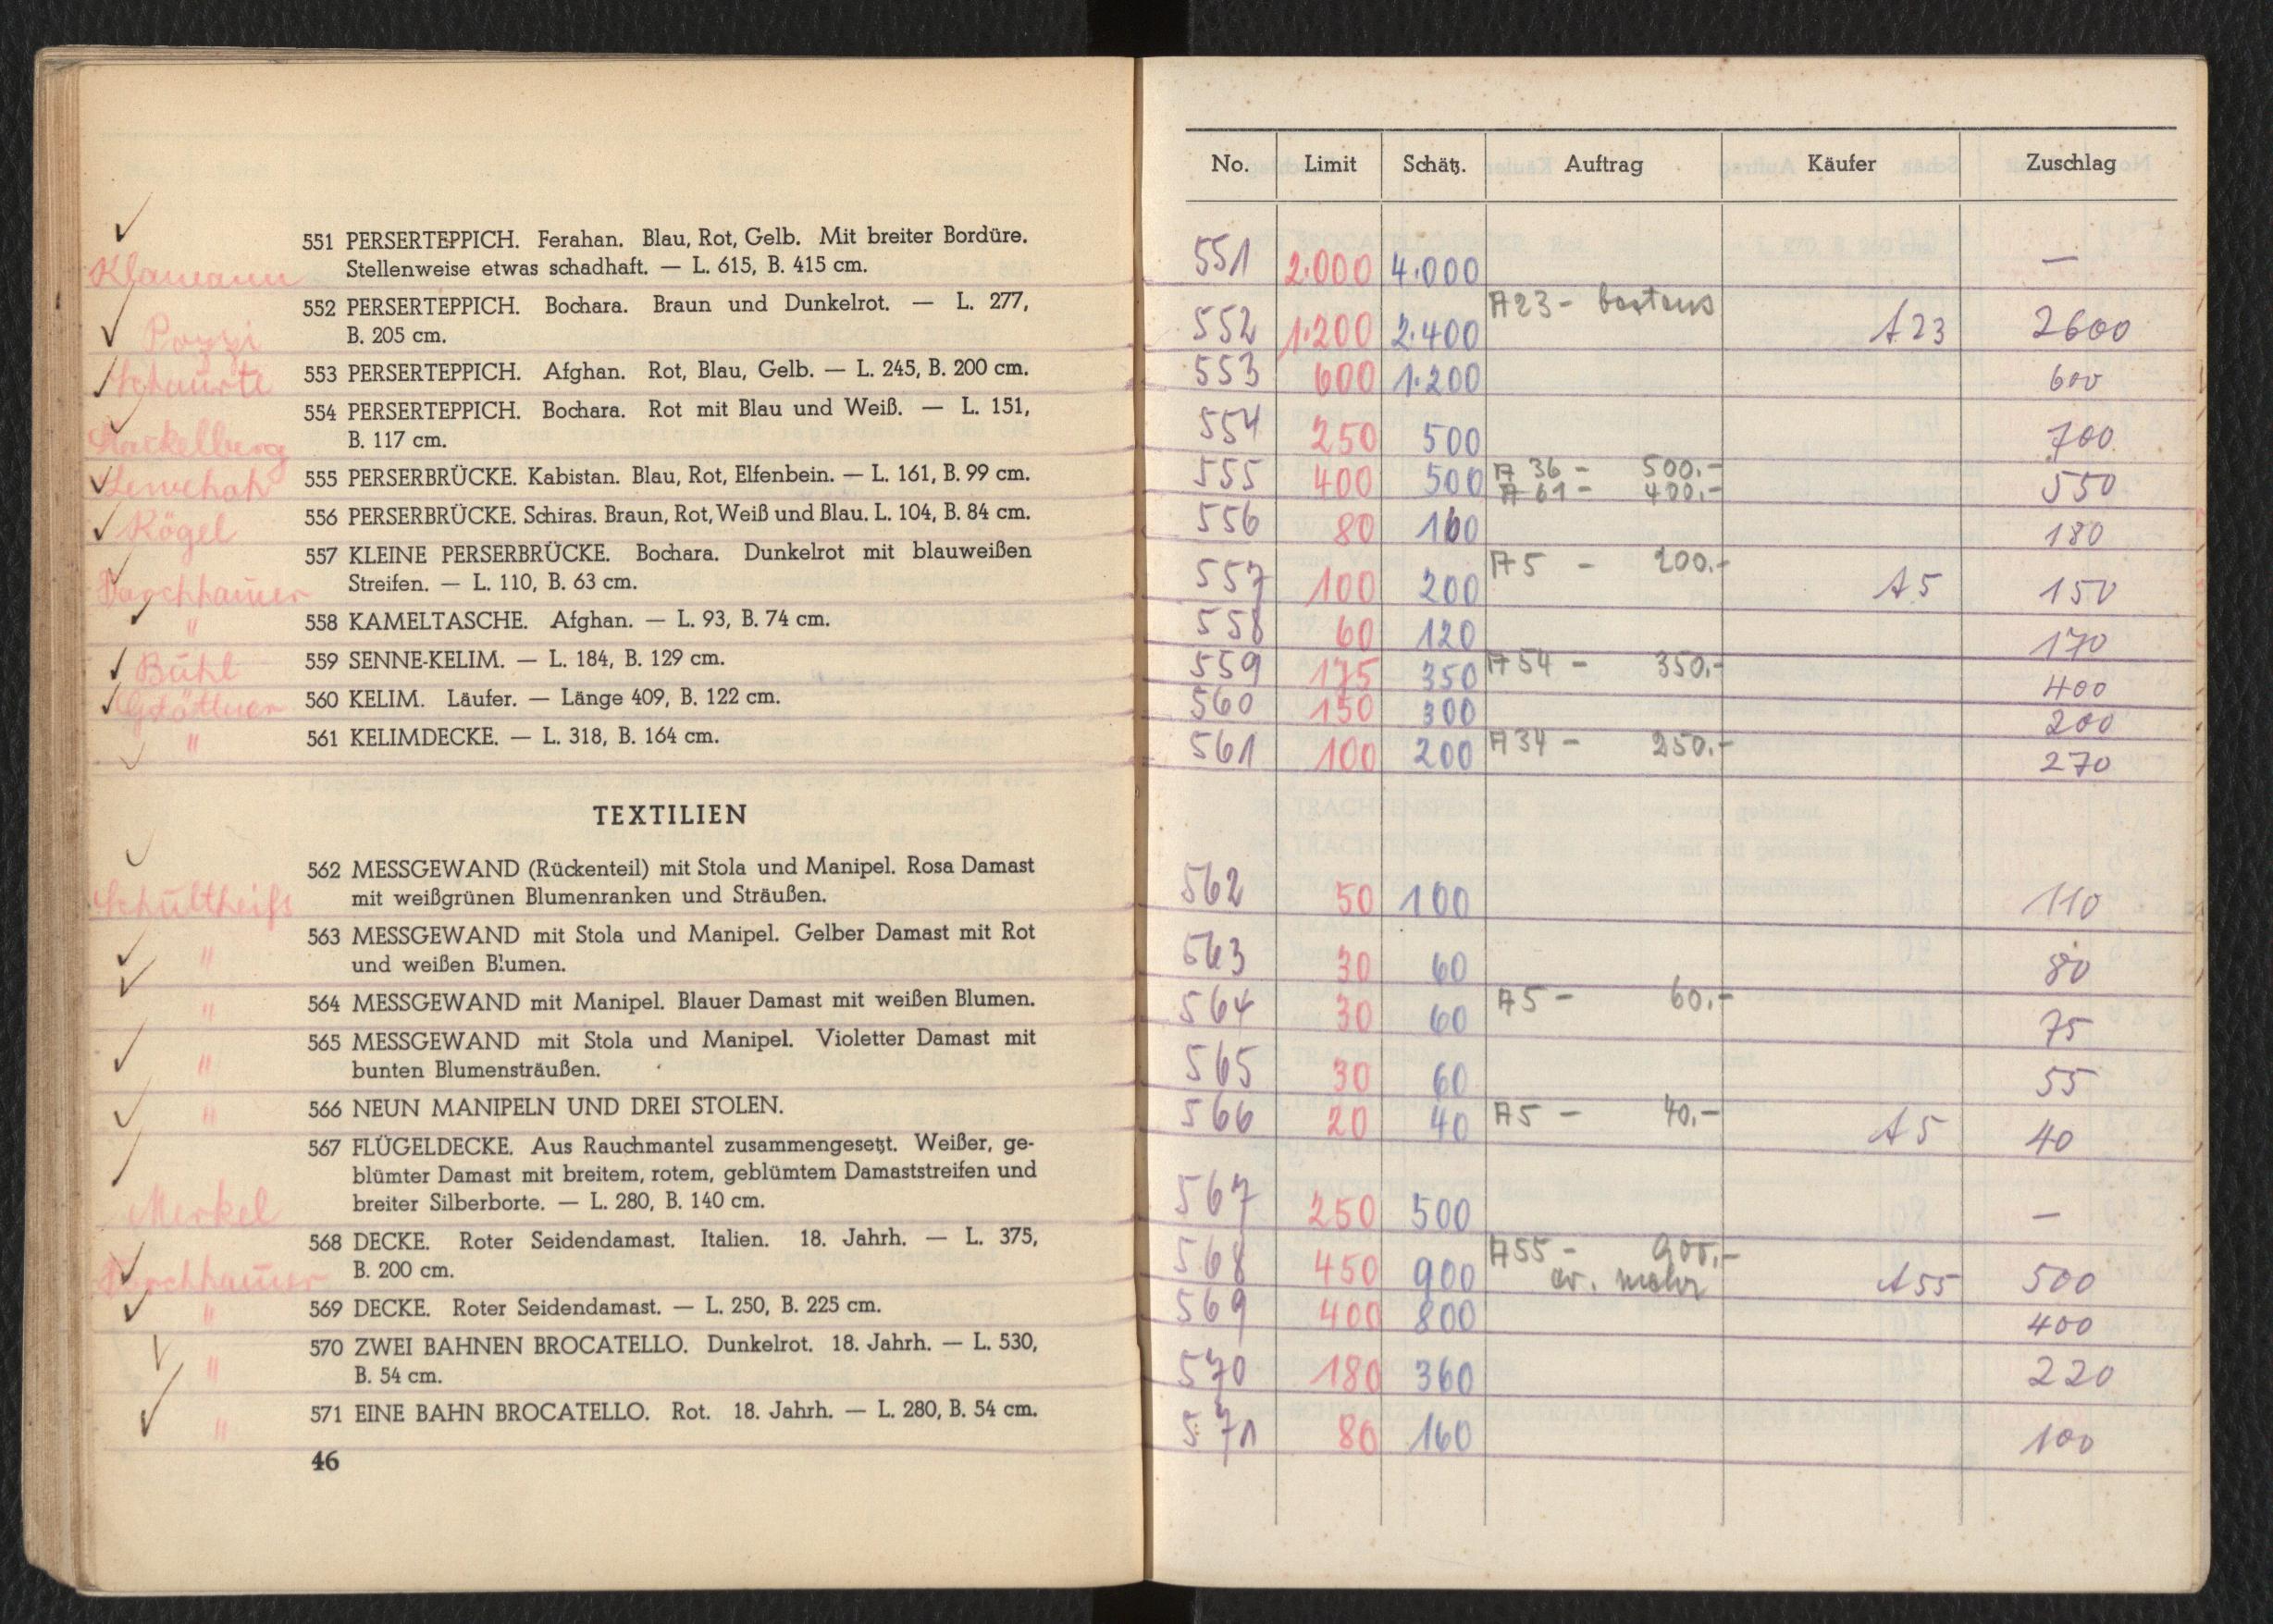 551 PERSERTEPPICH. Ferahan. Blau, Rot, Gelb. Mit breiter Bordüre.
Stellenweise etwas schadhaft. — L. 615, B. 415 cm.
552 PERSERTEPPICH. Bochara. Braun und Dunkelrot. — L. 277,
Pozzi B. 205 cm.
553 PERSERTEPPICH. Afghan. Rot, Blau, Gelb. — L. 245, B. 200 cm.
554 PERSERTEPPICH. Bochara. Rot mit Blau und Weiß. — L. 151,
Stackelberg B. 117 cm.
555 PERSERBRÜCKE. Kabistan. Blau, Rot, Elfenbein. — L. 161, B. 99 cm.
Kögel 556 PERSERBRÜCKE. Schiras. Braun, Rot, Weiß und Blau. L. 104, B. 84 cm.
557 KLEINE PERSERBRÜCKE. Bochara. Dunkelrot mit blauweißen
Streifen. — L. 110, B. 63 cm.
" 558 KAMELTASCHE. Afghan. — L. 93, B. 74 cm.
Bühl 559 SENNE-KELIM. — L. 184, B. 129 cm.
Gstöttner 560 KELIM. Läufer. — Länge 409, B. 122 cm.
" 561 KELIMDECKE. — L. 318, B. 164 cm.
TEXTILIEN
562 MESSGEWAND (Rückenteil) mit Stola und Manipel. Rosa Damast
Schultheiß mit weißgrünen Blumenranken und Sträußen.
563 MESSGEWAND mit Stola und Manipel. Gelber Damast mit Rot
" und weißen Blumen.
" 564 MESSGEWAND mit Manipel. Blauer Damast mit weißen Blumen.
565 MESSGEWAND mit Stola und Manipel. Violetter Damast mit
" bunten Blumensträußen.
" 566 NEUN MANIPELN UND DREI STOLEN.
567 FLÜGELDECKE. Aus Rauchmantel zusammengesetzt. Weißer, ge-
blümter Damast mit breitem, rotem, geblümtem Damaststreifen und
Merkel breiter Silberborte. — L. 280, B. 140 cm.
568 DECKE. Roter Seidendamast. Italien. 18. Jahrh. — L. 375,
B. 200 cm.
" 569 DECKE. Roter Seidendamast. — L. 250, B. 225 cm.
570 ZWEI BAHNEN BROCATELLO. Dunkelrot. 18. Jahrh. — L. 530,
" B. 54 cm.
" 571 EINE BAHN BROCATELLO. Rot. 18. Jahrh. — L. 280, B. 54 cm.
46
No. Limit Schätz. Auftrag Käufer Zuschlag
551 2.000 4.000 —
552 1.200 2.400 A23 - bestens A23 2600
553 600 1.200 600
554 250 500 700
555 400 500 A 36 - 500.- 550
A 61 - 400.-
556 80 160 180
557 100 200 A5 - 200.- A5 150
558 60 120 170
559 175 350 A 54 - 350.- 400
560 150 300 200
561 100 200 A34 - 250.- 270
562 50 100 110
563 30 60 80
564 30 60 A5 - 60.- 75
565 30 60 55
566 20 40 A5 - 40.- A5 40
567 250 500 —
568 450 900 A55 - 900.- A55 500
ev. mehr
569 400 800 400
570 180 360 220
571 80 160 100